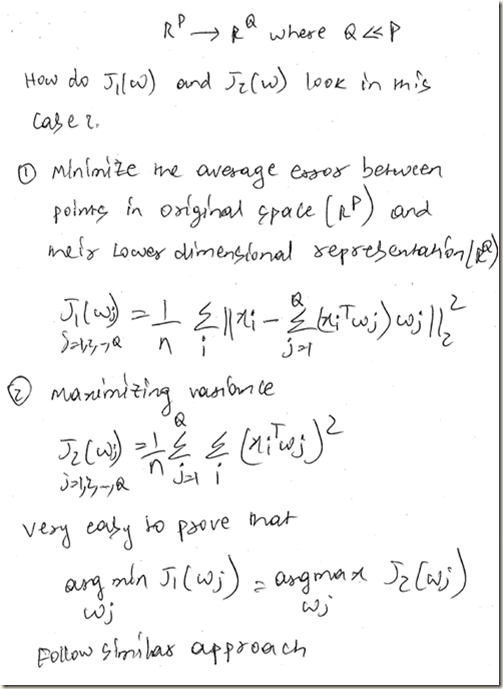 R^P → R^Q where Q << P
How do J₁(w) and J₂(w) look in this
case?
① Minimize the average error between
points in original space (R^P) and
their lower dimensional representation (R^Q)
J₁(wⱼ) = 1/n Σᵢ ||xᵢ - Σ_{j=1}^{Q} (xᵢᵀwⱼ) wⱼ||₂²
j=1,2,--,Q
② Maximizing variance
J₂(wⱼ) = 1/n Σ_{j=1}^{Q} Σᵢ (xᵢᵀwⱼ)²
j=1,2,--,Q
Very easy to prove that
arg min J₁(wⱼ) = argmax J₂(wⱼ)
wⱼ wⱼ
Follow similar approach